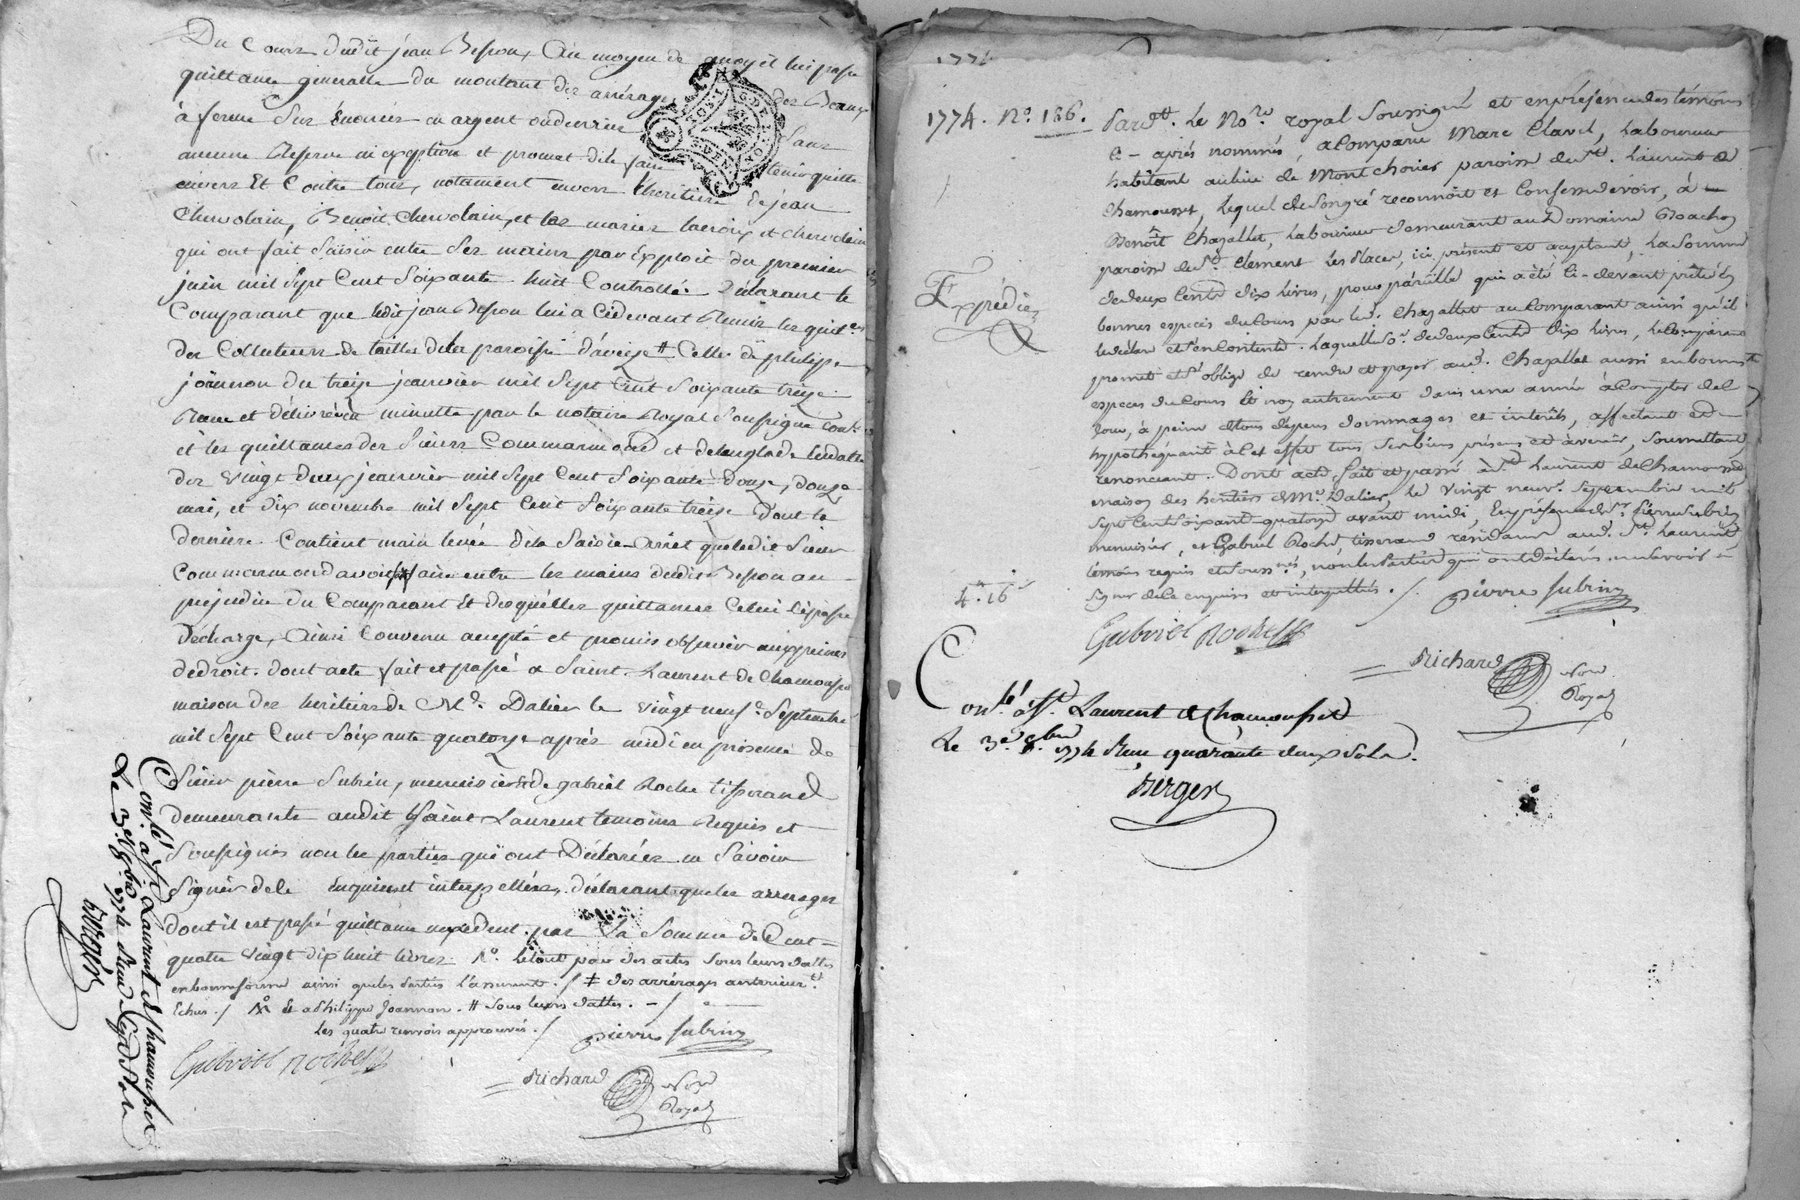 Du Cours dudit jean Besson, Au moyen de quoy il lui passe
quittance generalle du montant des arrérages des Beaux
à ferme sus Enoncés en argent ou denrrée Sans
aucune Reserve ni exeption et promet de le faire tenir quitte
envers Et Contre tous, notament envers
Chervolain, Benoit Chervolain, et les mariés lacroix et chervolain
qui ont fait Saisir entre Ses mains par Exploit du premier
juin mil Sept Cent Soixante huit Controllé Déclarant le
Comparant que ledit jean Besson lui a Cidevant Remis les quitces
des Collecteurs de tailles de la paroisse d'aveize # Celle de philippe
joannon du treize jeanvier mil Sept Cent Soixante treize
et délivré en minutte par le notaire Royal Soussigné
et les quittances des Sieurs Commarmond et delanglade
des vingt deux jeanvier mil Sept Cent Soixante douze, douze
mai, et dix novembre mil Sept Cent Soixante treize dont la
derniere Contient main levée de la Saisie arrêt que ledit Sieur
Commarmond avoit faire entre les mains dudit Besson au
prejudice du Comparant Et desquelles quittances Celui ci passe
décharge, Ainsi Convenu accepté et promis observer aux peines
de droit. dont acte fait et passé a Saint Laurent de Chamousset
maison des heritiers de Me. Dalier le vingt neuf Septembre
mil Sept Cent Soixante quatorze après midi en présence de
Sieur pierre Subrin, menuisier & de gabriel Roche tisserand
demeurants audit Saint Laurent temoins Requis et
Soussignés non les parties qui ont Déclarées ne Savoir
Signer de ce Enquises et interpellées. déclarant que les arrerages
dont il est passé quittance n'excedent pas la Somme de Cent
quatre vingt dix huit livres. Le tout par des actes sous leurs dattes
en bonne forme ainsi que les parties l'assurent. / ‡ des arrérages anterieurt.
Echus. / & a philippe Joannon. # Sous leurs dattes. - /
Les quatre renvois approuvés. /
pierre Subrin
Gabriel Roche
Richard Nore Royal
Conlé. a St Laurent de Chamousset
Le 3e 8bre 1774 Reçu
Berger
1774
1774. No. 186.
Pardt. Le Nore royal Soussigné et en présence des témoins
ci-après nommés, a Comparu Marc Clavel, Laboureur
habitant au lieu de Montchoier paroisse de St. Laurent de
Chamousset, lequel de son gré reconnoit et Confesse devoir, à
Benoît Chazallet, Laboureur demeurant au Domaine Rachoz
paroisse de St. Clement Les Places, ici présent et acceptant, La Somme
de deux Cents dix livres, pour pareille qui a été Ci-devant prêtée en
bonnes especes du Cours par led. Chazallet au Comparant ainsi qu'il
le déclare et s'en Contente. Laquelle so. de deux Cents dix livres, le Comparant
promet et s'oblige de rendre et payer aud. Chazallet aussi en bonnes
especes du Cours et non autrement dans une année à Compter de Ce
jour, à peine de tous dépens dommages et intérêts, affectant et
hypothéquant à Cet effet tous Ses biens présens et à venir, Soumettant,
renonçant. Dont acte. fait et passé à St Laurent de Chamousset
maison des héritiers de Me. Dalier, Le vingt neuf Septembre mil
Sept Cent Soixante quatorze avant midi, En présence de Sr. Pierre Subrin
menuisier, et Gabriel Roche, tisserand résidans aud. St. Laurent
témoins requis et Soussnés, non les Parties qui ont déclarés ne Savoir
signer de ce enquises et interpellées. /.
Expédiez
4.. 16
pierre Subrin
Gabriel Roche
Richard Nore Royal
Conlé a St. Laurent de Chamousset
Le 3e 8bre 1774 Reçu quarante deux Sols.
Berger